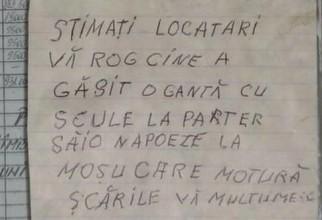 STIMAȚI LOCATARI
VĂ ROG CINE A
GĂSIT O GANTĂ CU
SCULE LA PARTER
SĂIO NAPOEZE LA
MOȘU CARE MOTURĂ
ȘCĂRILE VĂ MULTUMESC